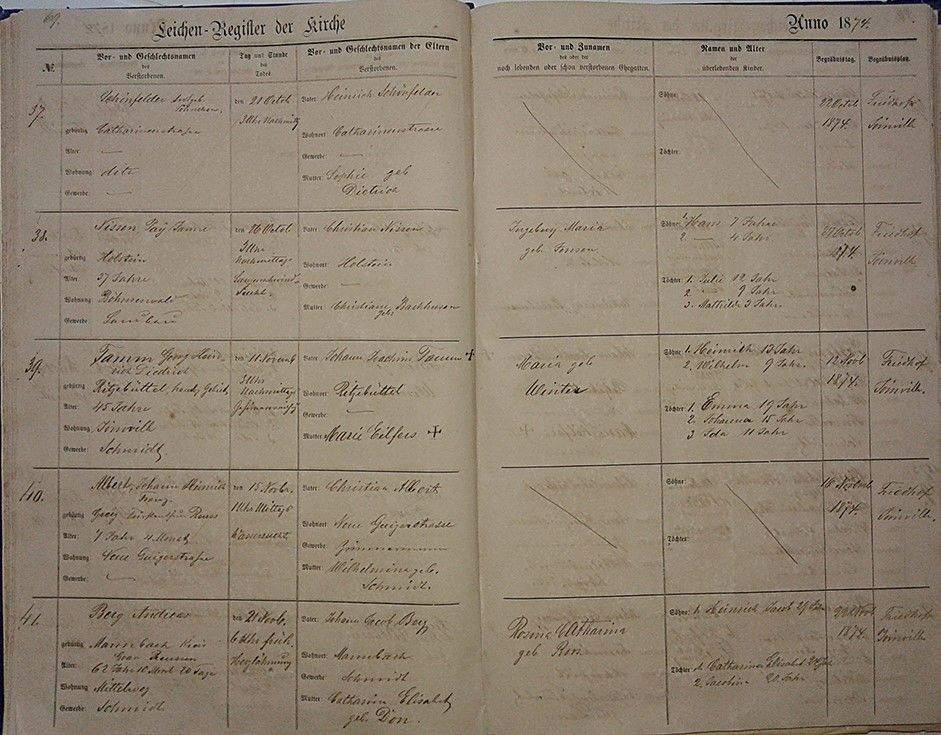 69.
Leichen-Register der Kirche
Anno 1874.
№
Vor- und Geschlechtsnamen
des
Verstorbenen.
Tag und Stunde
des
Todes.
Vor- und Geschlechtsnamen der Eltern
des
Verstorbenen.
Vor- und Zunamen
des oder der
noch lebenden oder schon verstorbenen Ehegatten.
Namen und Alter
der
überlebenden Kinder.
Begräbnistag.
Begräbnisplatz.
37.
Schönfelder
gebürtig Catharinenstrasse
Alter: —
Wohnung: dito
Gewerbe: —
den 21 Octob
3 Uhr Nachmittg
Vater: Heinrich Schönfelder
Wohnort: Catharinenstrasse
Gewerbe: —
Mutter: Sophie geb
Dietrich
Söhne:
Töchter:
22 Octob
1874.
Friedhof
Joinville
38.
Nissen Pay
gebürtig Holstein
Alter: 37 Jahre
Wohnung: Böhmerwald
Gewerbe: Landbau
den 26 Octob
3 Uhr
Nachmittags
Vater: Christian Nissen
Wohnort: Holstein
Gewerbe: —
Mutter: Christiane
geb
Ingeburg Maria
geb. Jensen
Söhne: 1 Hans 7 Jahre
2. — 4 Jahr
Töchter: 1. Julie 12 Jahr
2. 9 Jahr
3. Mathilde 3 Jahr.
1874.
Friedhof
Joinville
39.
Tamm Georg Hein
rich Diedrich
gebürtig Ritzebüttel, hamb. Gebiet
Alter: 45 Jahre
Wohnung: Joinville
Gewerbe: Schmidt
den 11 Novemb
3 Uhr
Nachmittags
Vater: Johann Joachim Tamm +
Wohnort: Ritzebüttel
Gewerbe: —
Mutter: Marie Eilfers +
Maria geb
Winter
Söhne: 1. Heinrich 13 Jahr
2. Wilhelm 9 Jahr.
Töchter: 1. Emma 19 Jahr
2. Johanna 15 Jahr
3 Ida 11 Jahr
12 Novb
1874.
Friedhof
Joinville.
40.
Albert, Johann Heinrich
gebürtig Greiz Fürstenthum Reuss
Alter: 1 Jahr 4 Monat
Wohnung: Neue Guigerstraße
Gewerbe: —
den 15 Novbr.
1 Uhr Mittags
Vater: Christian Albert
Wohnort: Neue Guigerstrasse
Gewerbe: Zimmermann
Mutter: Wilhelmine geb.
Schmidt.
Söhne:
Töchter:
16 Novemb
1874
Friedhof
Joinville
41.
Berg Andreas
gebürtig: Mannbach Kreis
Alter: 62 Jahr 10 Monat 20 Tage
Wohnung: Mittelweg
Gewerbe: Schmidt
den 21 Novb.
6 Uhr früh.
Vater: Johann Georg Berg
Wohnort: Mannbach
Gewerbe: Schmidt
Mutter: Catharina Elisabet
geb. Dön.
Rosine Catharina
geb
Söhne: 1. Heinrich Jacob 27 Jahr
Töchter: 1. Catharina Elisabet 24 Jah
2. Jacobine 20 Jahr
22 Novb
1874.
Friedhof
Joinville